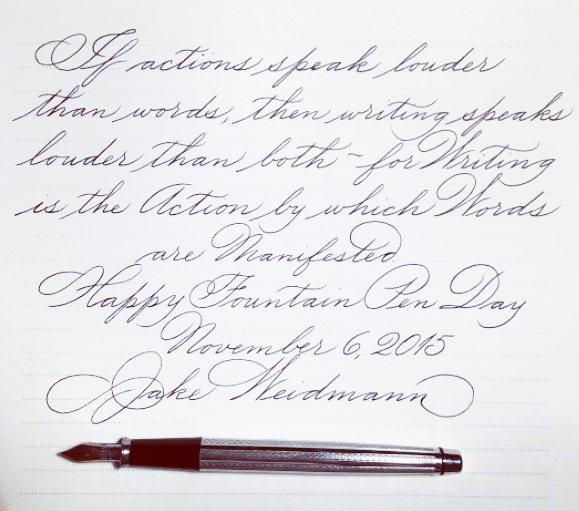 If actions speak louder
than words, then writing speaks
louder than both - for Writing
is the Action by which Words
are Manifested
Happy Fountain Pen Day
November 6, 2015
Jake Weidmann